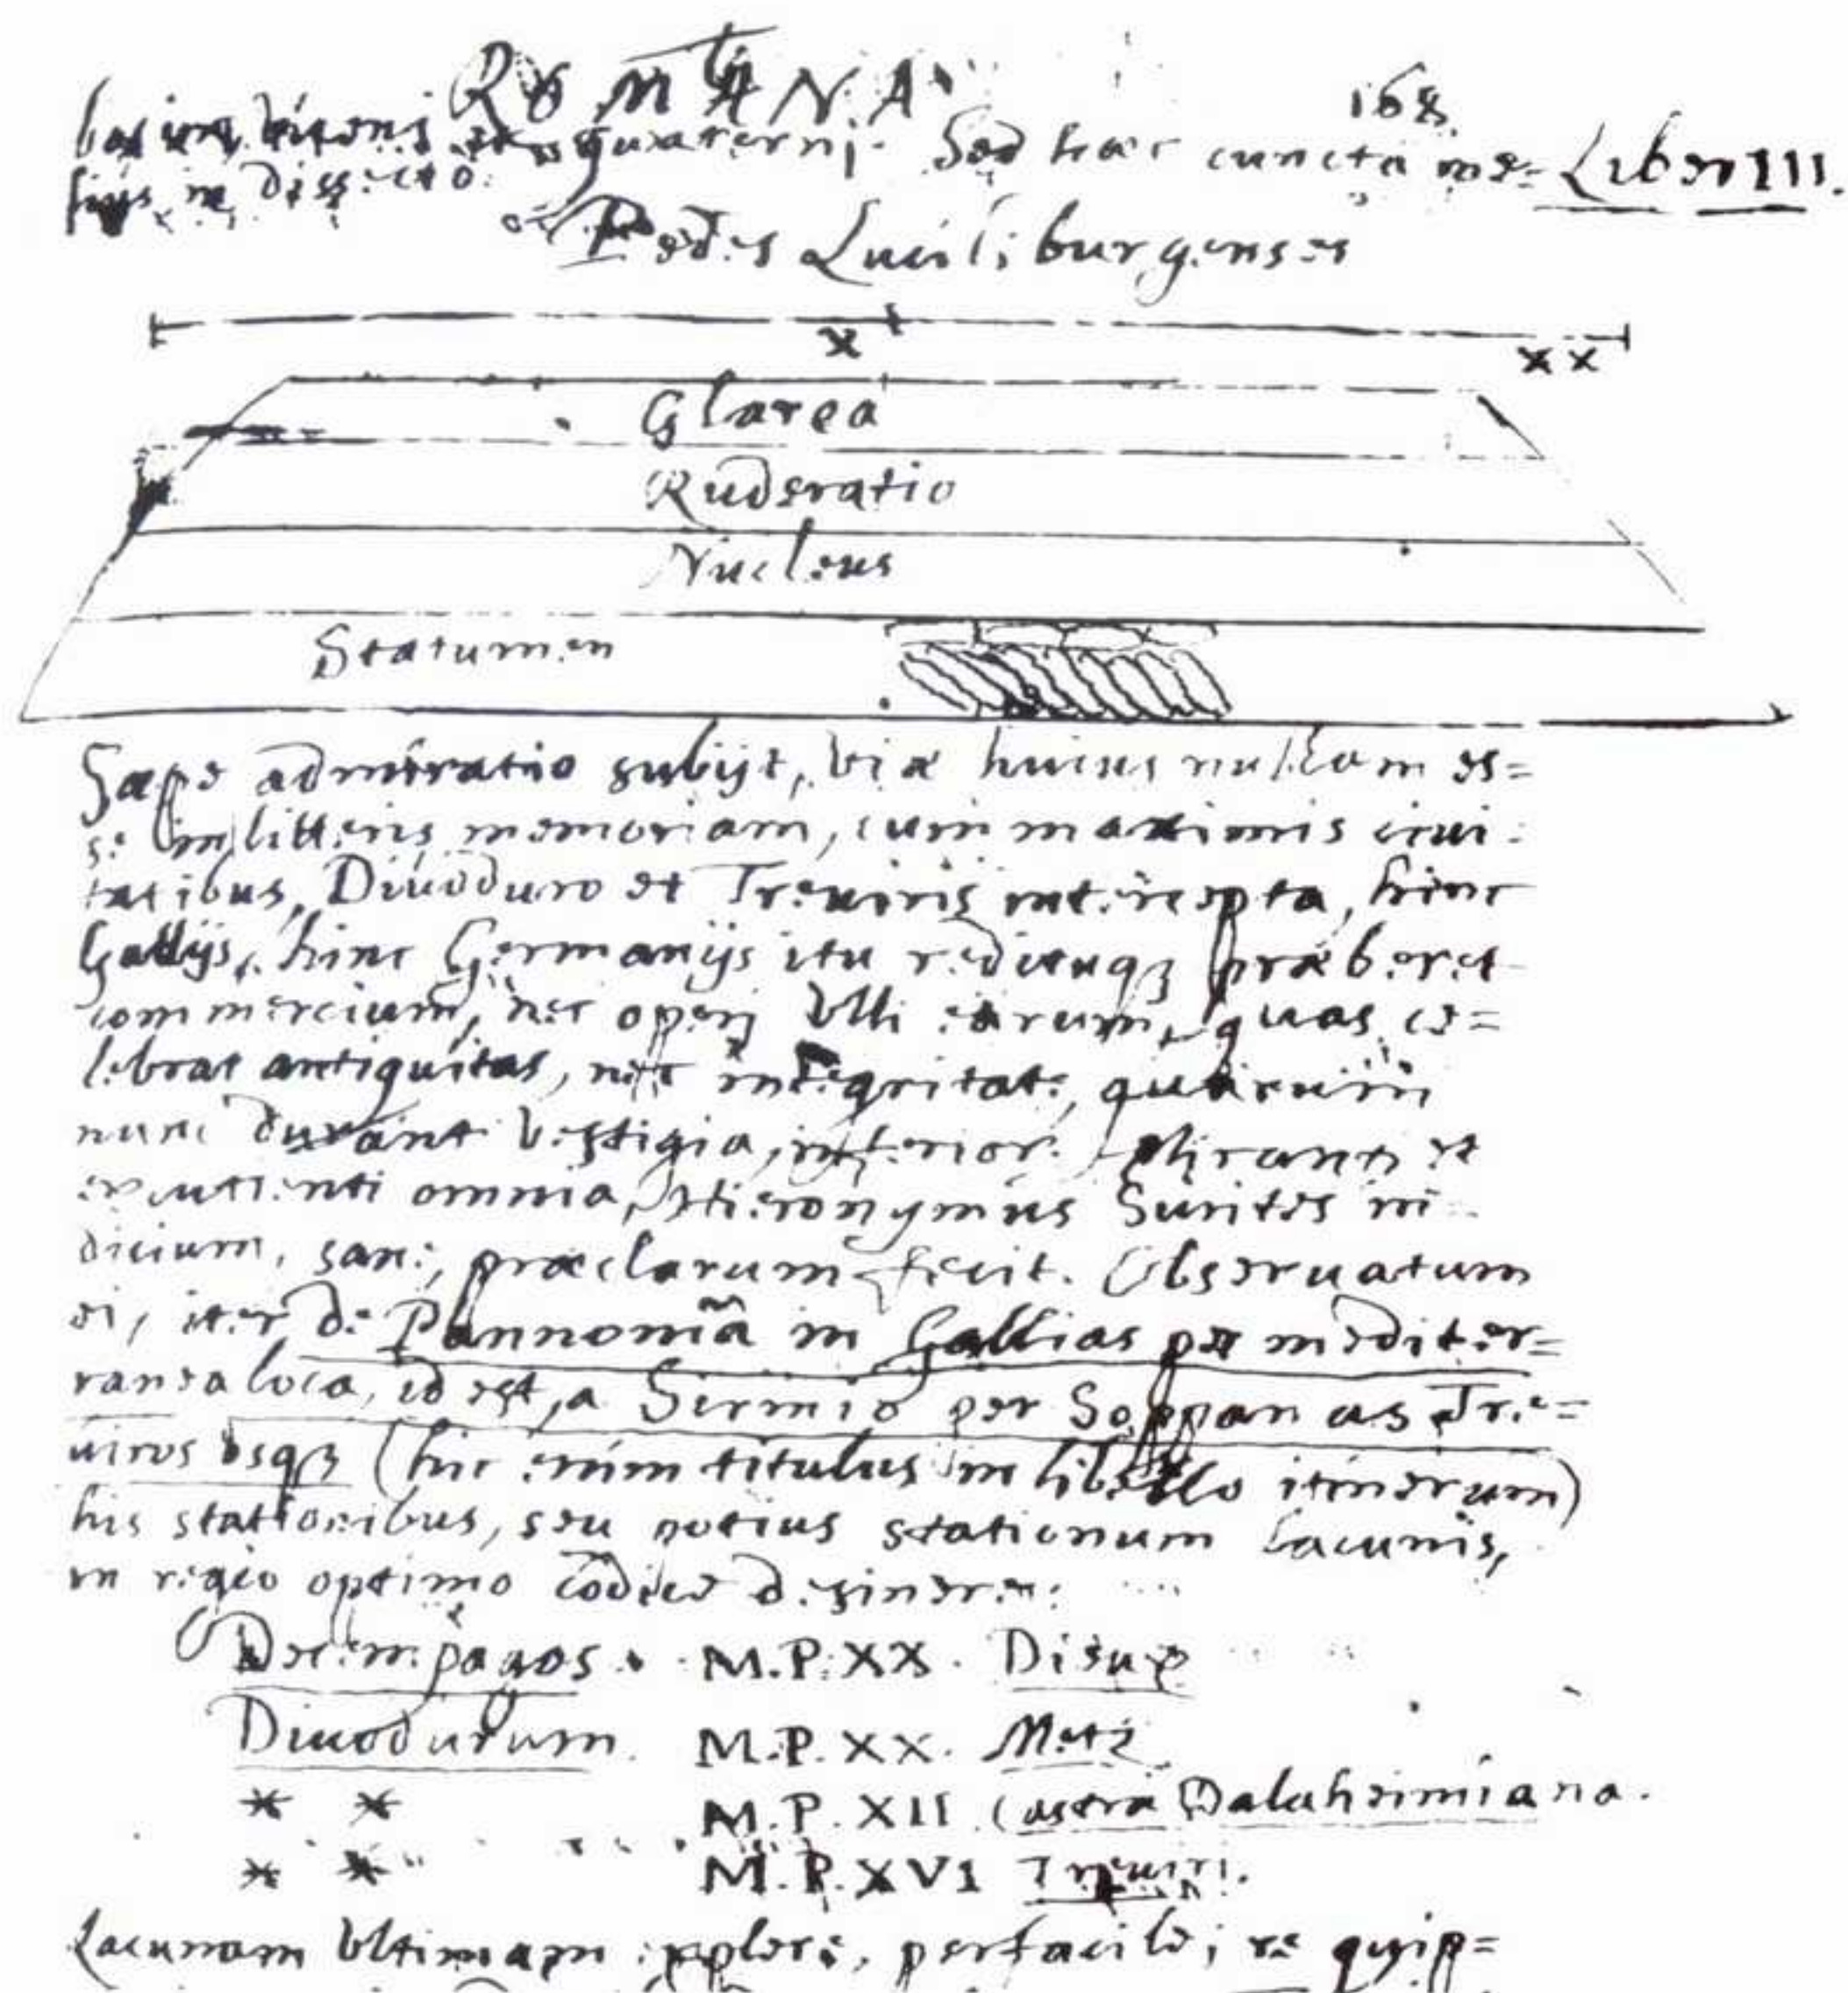 ROMANA
168.
quaterni. Sed haec cuncta me= Liber III.
lius in dissecto.
Pedes Luciliburgenses
x
xx
Glarea
Ruderatio
Nucleus
Statumen
Saepe admiratio subijt, viae huius nullam es=
se in litteris memoriam, cum maximis ciui-
tatibus, Diuoduro et Treuiris intercepta, hinc
Gallijs, hinc Germanijs itu redituqz praeberet
commercium, nec operi vlli earum, quas ce=
lebrat antiquitas, nec integritate, quarum
nunc durant vestigia, inferior. Miranti et
excutienti omnia, Hieronymus Surites in-
dicium, sane, praeclarum fecit. Obseruatum
ei, iter de Pannoniã in Gallias per mediter=
ranea loca, id est, a Sirmio per Soppian as Tre=
uiros vsqz (hic enim titulus in libello itinerum)
his stationibus, seu potius stationum lacunis,
in regio optimo codice desinere:
Decem pagos. M.P. XX. Dieup
Diuodurum. M.P. XX. Metz
* * M.P. XII Castra Dalaheimiana.
* * M.P. XVI Treuiri.
Lacunam vltimam explere, perfacile; re quip=